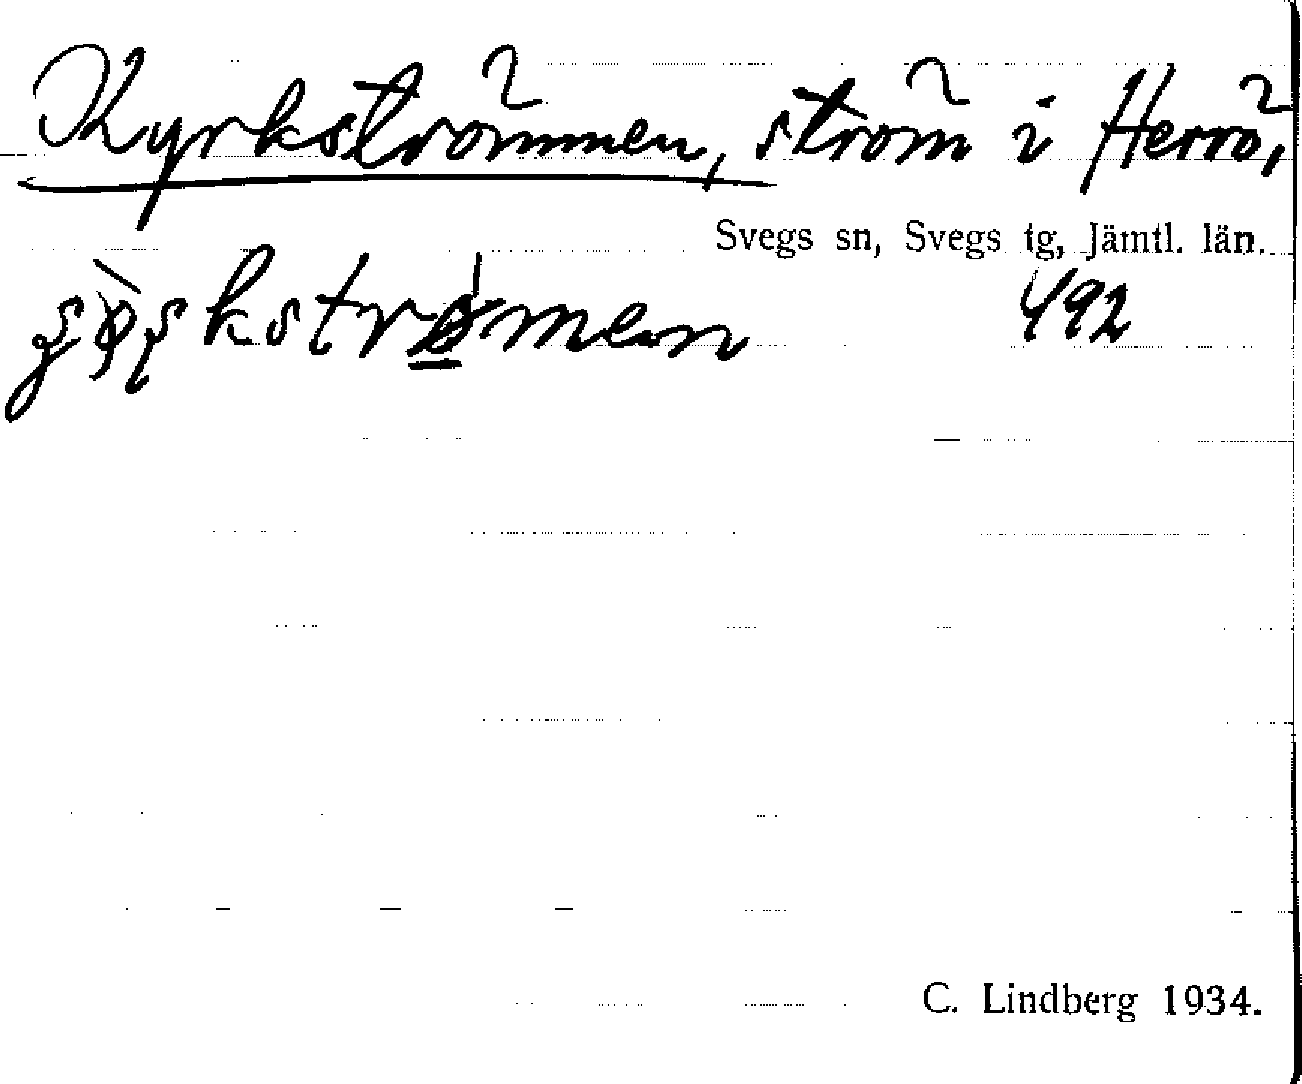 Kyrkströmmen, ström i Herrö,
Svegs sn, Svegs tg, Jämtl. län.
492
C. Lindberg 1934.